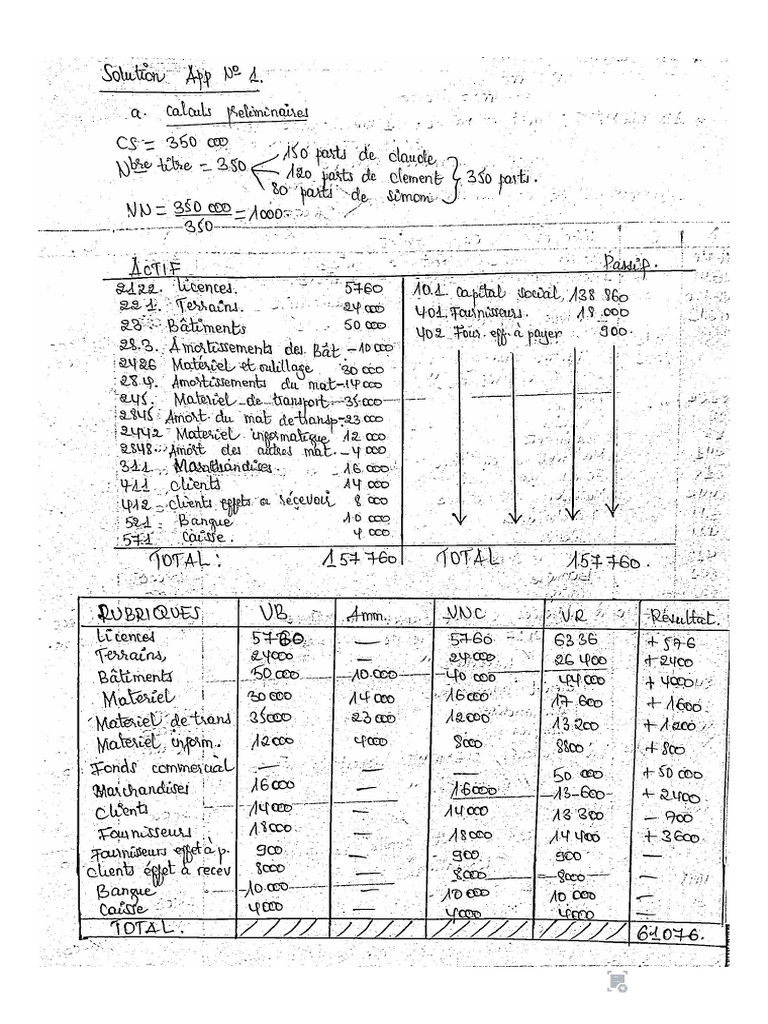 Solution App Nº 1.
a. calculs preliminaires
CS = 350 000
Nbre titre = 350
150 parts de claude
120 parts de clement
80 parts de simon
350 parts.
NN = 350 000 / 350 = 1000
ACTIF Passif.
2122. Licences. 5760 10.1 Capital Social 138 860
221. Terrains. 24 000 401 Fournisseurs. 18 000
23 Bâtiments 50 000 402 Four. eff. à payer 900
28.3. Amortissements des Bât -10 000
2426 Matériel et outillage 30 000
28.4. Amortissements du mat -14 000
245. Materiel de transport 35 000
2845 Amort du mat de transp -23 000
2442 Materiel informatique 12 000
2848 Amort des autres mat. -4 000
311 Marchandises. 16 000
411 clients 14 000
412 clients effets a récevoir 8 000
521 Banque 10 000
571 Caisse. 4 000
TOTAL : 157 760 TOTAL 157 760.
RUBRIQUES VB Amm. VNC VR Résultat.
Licences 5760 — 5760 6336 +576
Terrains, 24000 — 24000 26 400 +2400
Bâtiments 50 000 10.000 40 000 44 000 +4000
Matériel 30 000 14 000 16 000 17 600 +1600
Materiel de trans 35000 23 000 12000 13 200 +1200
Materiel inform. 12 000 4000 8000 8800 +800
Fonds commercial — — — 50 000 +50 000
Marchandises 16000 — 16000 13 600 +2400
Clients 14000 — 14000 13 300 -700
Fournisseurs 18000 — 18 000 14 400 +3600
Fournisseurs effet à p. 900 — 900 900 —
clients éffet à recev 8000 — 8000 8000 —
Banque 10 000 — 10 000 10 000 —
Caisse 4000 — 4000 4000 —
TOTAL. 61 076.